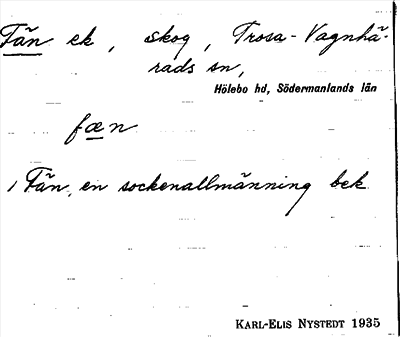 Fän ek, skog, Trosa-Vagnhä-
rads sn,
Hölebo hd, Södermanlands län
fæn
1 Fän, en sockenallmänning bek.
KARL-ELIS NYSTEDT 1935